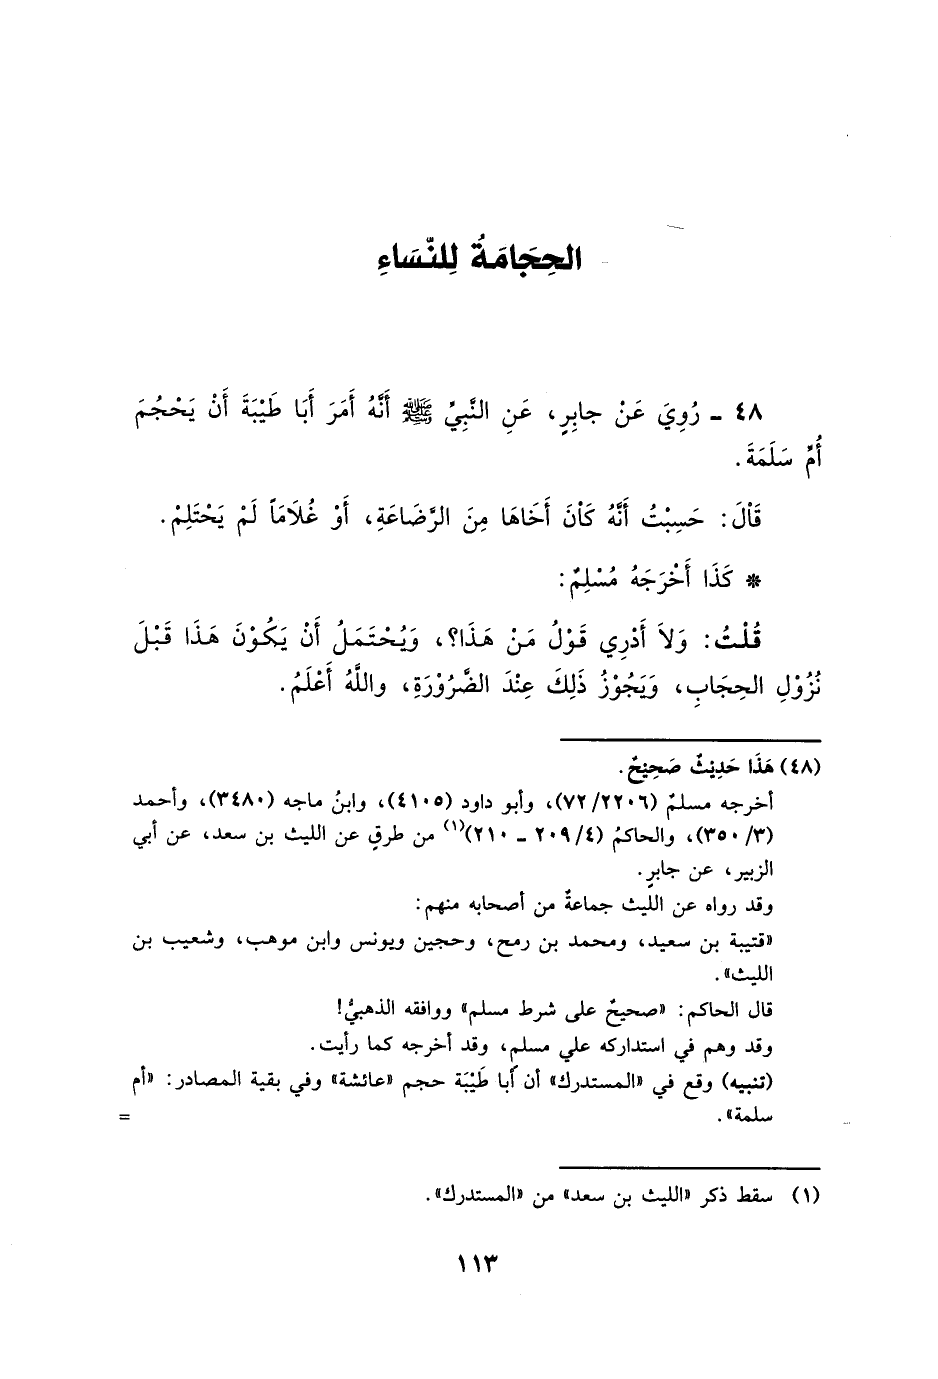 الحِجَامَةُ لِلنِّسَاءِ
٤٨ ـ رُوِيَ عَنْ جابِرٍ، عَنِ النَّبِيِّ ﷺ أَنَّهُ أَمَرَ أَبَا طَيْبَةَ أَنْ يَحْجُمَ
أُمِّ سَلَمَةَ.
قَاْلَ: حَسِبْتُ أَنَّهُ كَاْنَ أَخَاهَا مِنَ الرَّضَاعَةِ، أَوْ غُلَامَاً لَمْ يَحْتَلِمْ.
* كَذَا أَخْرَجَهُ مُسْلِمٌ:
قُلْتُ: وَلاَ أَدْرِي قَوْلُ مَنْ هَذَا؟، وَيُحْتَمَلُ أَنْ يَكُوْنَ هَذَا قَبْلَ
نُزُوْلِ الحِجَابِ، وَيَجُوْزُ ذَلِكَ عِنْدَ الضَّرُوْرَةِ، واللَّهُ أَعْلَمُ.
(٤٨) هَذَا حَدِيْثٌ صَحِيْحٌ.
أخرجه مسلمٌ (٧٢/٢٢٠٦)، وأبو داود (٤١٠٥)، وابنُ ماجه (٣٤٨٠)، وأحمد
(٣٥٠/٣)، والحاكمُ (٢٠٩/٤ ـ ٢١٠)(١) من طرقٍ عن الليث بن سعد، عن أبي
الزبير، عن جابرٍ.
وقد رواه عن الليث جماعةٌ من أصحابه منهم:
«قتيبة بن سعيد، ومحمد بن رمح، وحجين ويونس وابن موهب، وشعيب بن
الليث».
قال الحاكم: «صحيحٌ على شرط مسلم» ووافقه الذهبيُّ!
وقد وهم في استدراكه علي مسلمٍ، وقد أخرجه كما رأيت.
(تنبيه) وقع في «المستدرك» أن أبا طَيْبَة حجم «عائشة» وفي بقية المصادر: «أم
سلمة». =
(١) سقط ذكر «الليث بن سعد» من «المستدرك».
١١٣